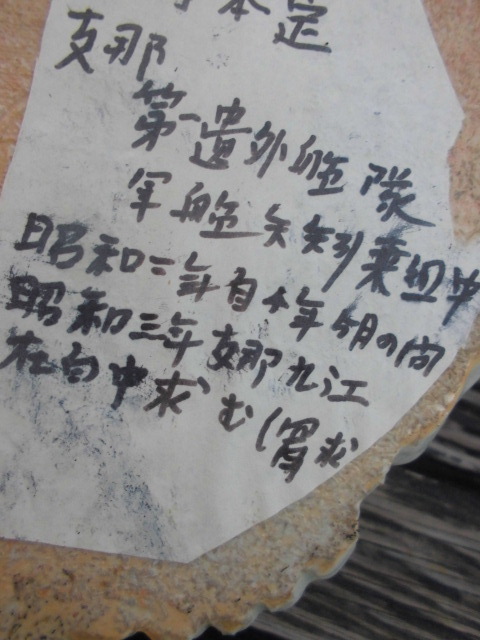 本定
支那
第一遣外艦隊
軍艦矢矧乗組中
昭和二年自十年ヶ月の間
昭和三年支那九江
在白中求む(買求